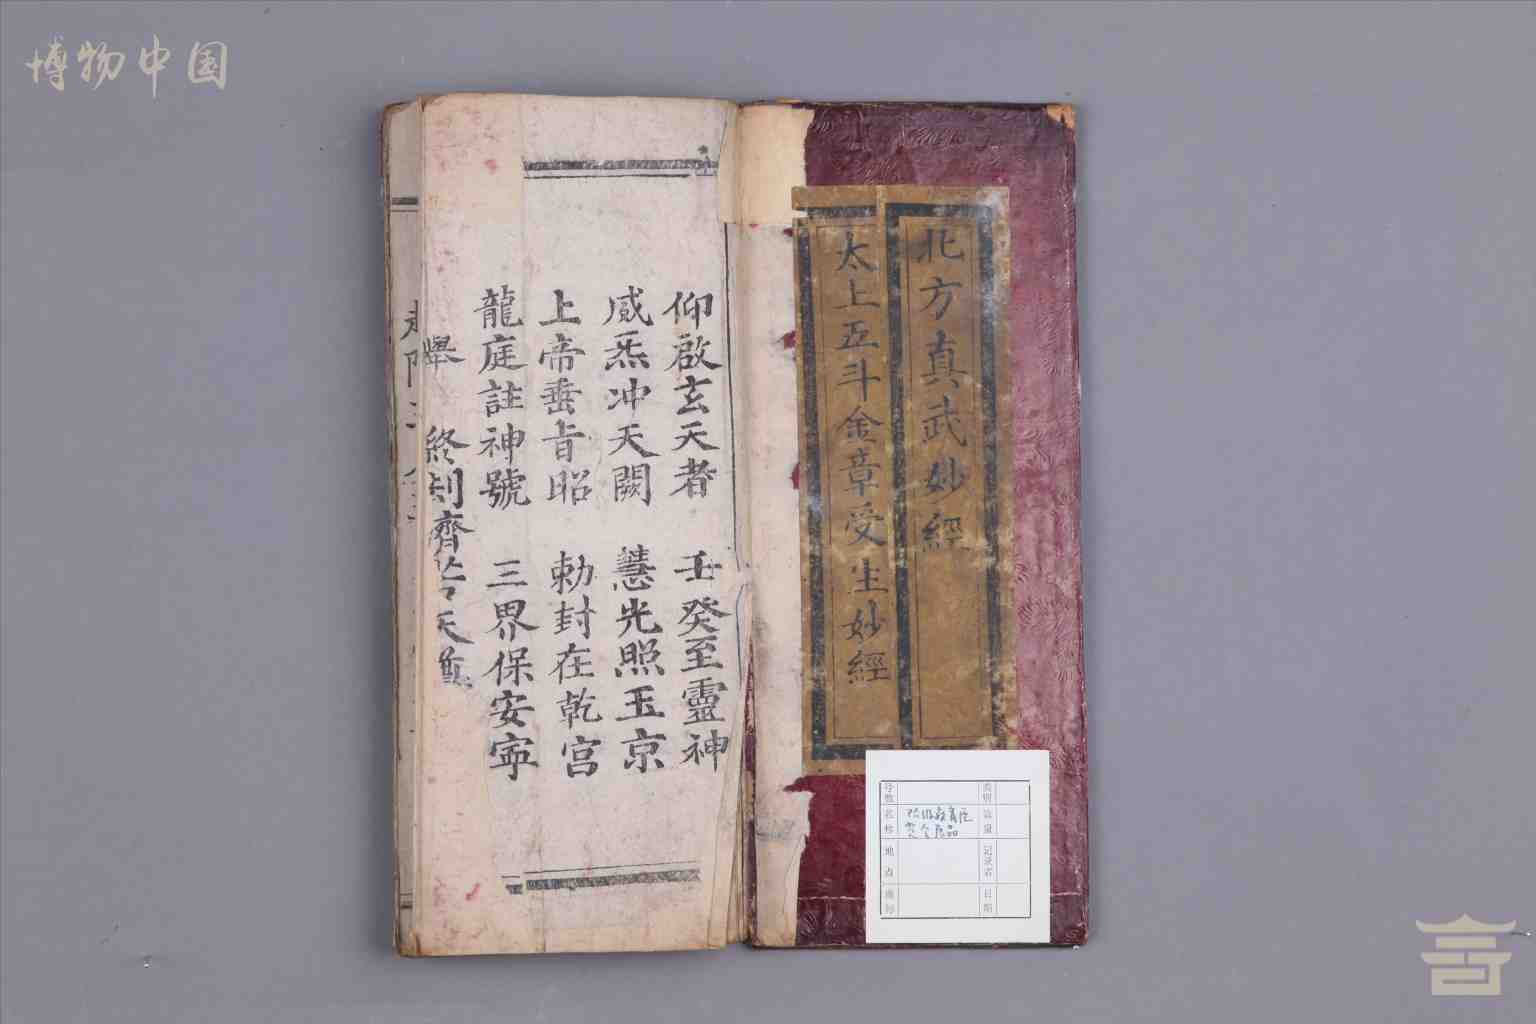 博物中国
北方真武妙經
太上五斗金章受生妙經
仰啟玄天者 壬癸至靈神
威炁冲天闕 慧光照玉京
上帝垂旨昭 勅封在乾宫
龍庭註神號 三界保安寧
舉
终刦濟苦天尊
号数
类别
名称
数量
地点
记录者
备考
日期